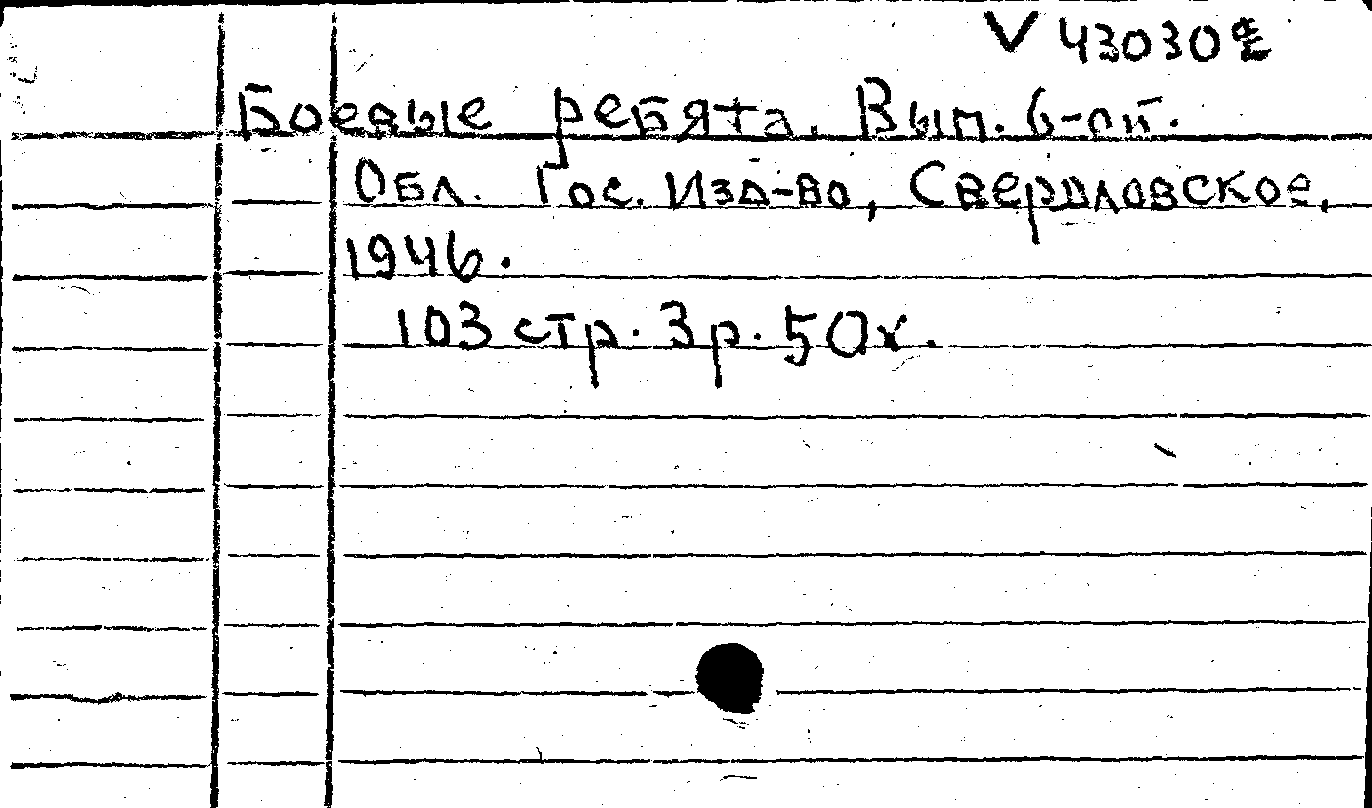 V 43030
Боевые ребята. Вып. 6-ой.
Обл. Гос. Изд-во, Свердловское,
1946.
103 стр. 3 р. 50 к.